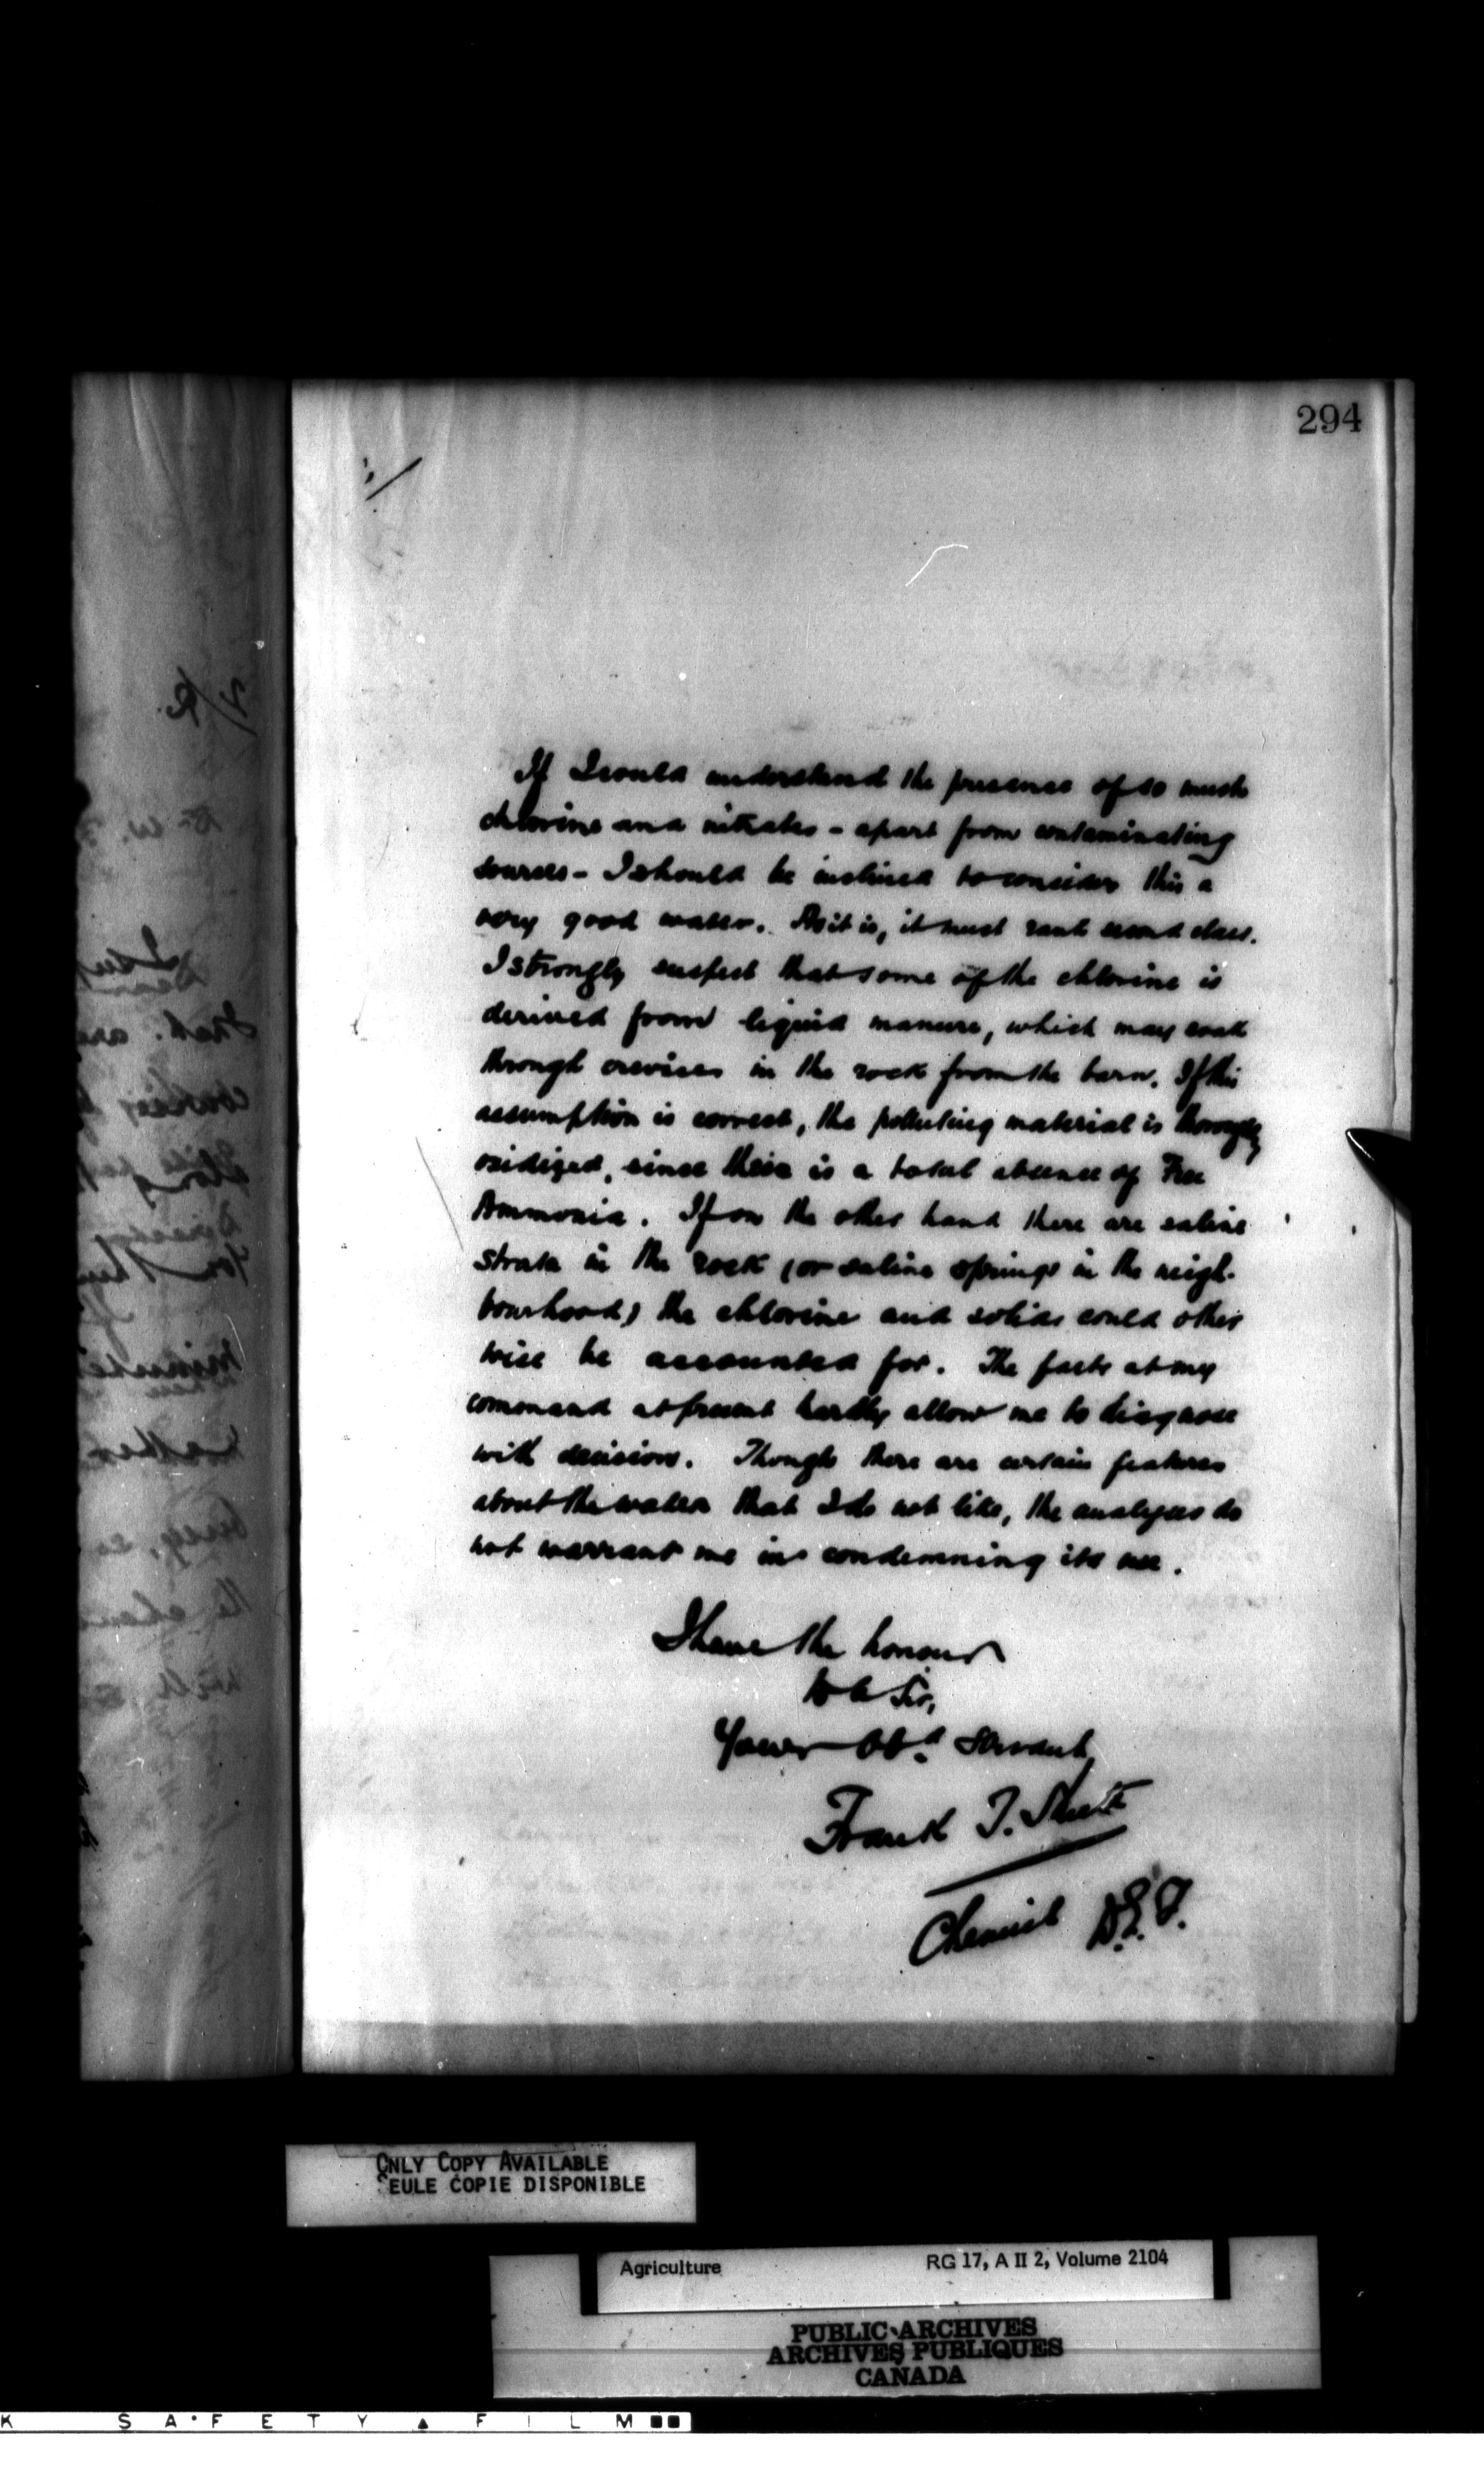 294
If I could understand the presence of so much
chlorine and nitrates - apart from contaminating
sources - I should be inclined to consider this a
very good water. As it is, it must rank second class.
I strongly suspect that some of the chlorine is
derived from liquid manure, which may soak
through crevices in the rock from the barn. If this
assumption is correct, the polluting material is thoroughly
oxidized, since there is a total absence of Free
Ammonia. If on the other hand there are saline
strata in the rock (or saline springs in the neigh-
bourhood) the chlorine and solids could other
wise be accounted for. The facts at my
command at present hardly allow me to diagnose
with decision. Though there are certain features
about the water that I do not like, the analyses do
not warrant me in condemning its use.
I have the honour
to be Sir,
Your Obd. Servant,
Frank T. Shutt
Chemist D.E.F.
ONLY COPY AVAILABLE
SEULE COPIE DISPONIBLE
Agriculture RG 17, A II 2, Volume 2104
PUBLIC ARCHIVES
ARCHIVES PUBLIQUES
CANADA
K SAFETY ▲ FILM ■■